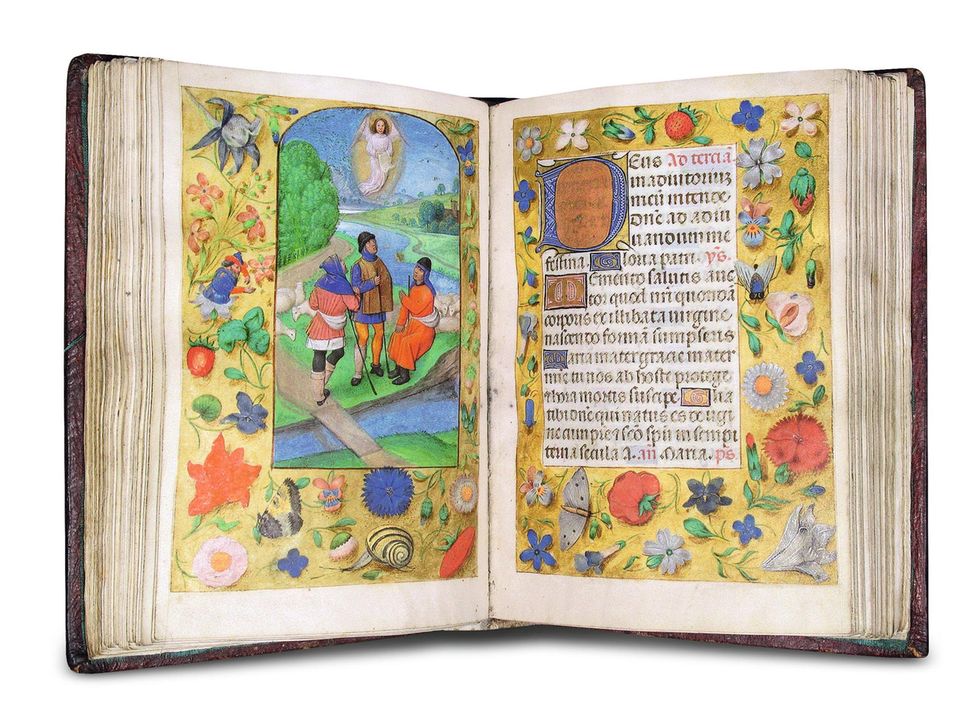 Deus Ad terciā.
in adiutorium
meū intende
Dn̄e ad adiu
uandum me
festina. Gloria patri. p̄s.
Memento salutis auc
tor quod nr̄i quondā
corporis ex illibata uirgine
nascendo formā sumpseris
Maria mater gracie mater
mie tu nos ab hoste protege
et hora mortis suscipe Glia
tibi dn̄e qui natus es de uigi
ne cum pr̄e et sc̄o spū in sempi
terna secula A. an̄ Maria. p̄s.